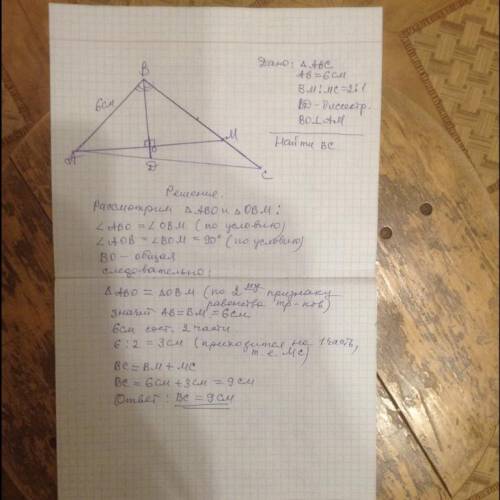 B
6см
M
A
D
C
Дано: △ABC
AB=6см
BM:MC=2:1
BD-биссектр.
BO⊥AM
Найти BC
Решение.
Рассмотрим △ABO и △OBM:
∠ABO=∠OBM (по условию)
∠AOB=∠BOM=90° (по условию)
BO-общая
следовательно:
△ABO=△OBM (по 2му признаку
равенства тр-ков)
значит AB=BM=6см.
6см сост. 2 части
6:2=3см (приходится на 1часть,
т.е. MC)
BC=BM+MC
BC=6см+3см=9см
Ответ: BC=9см